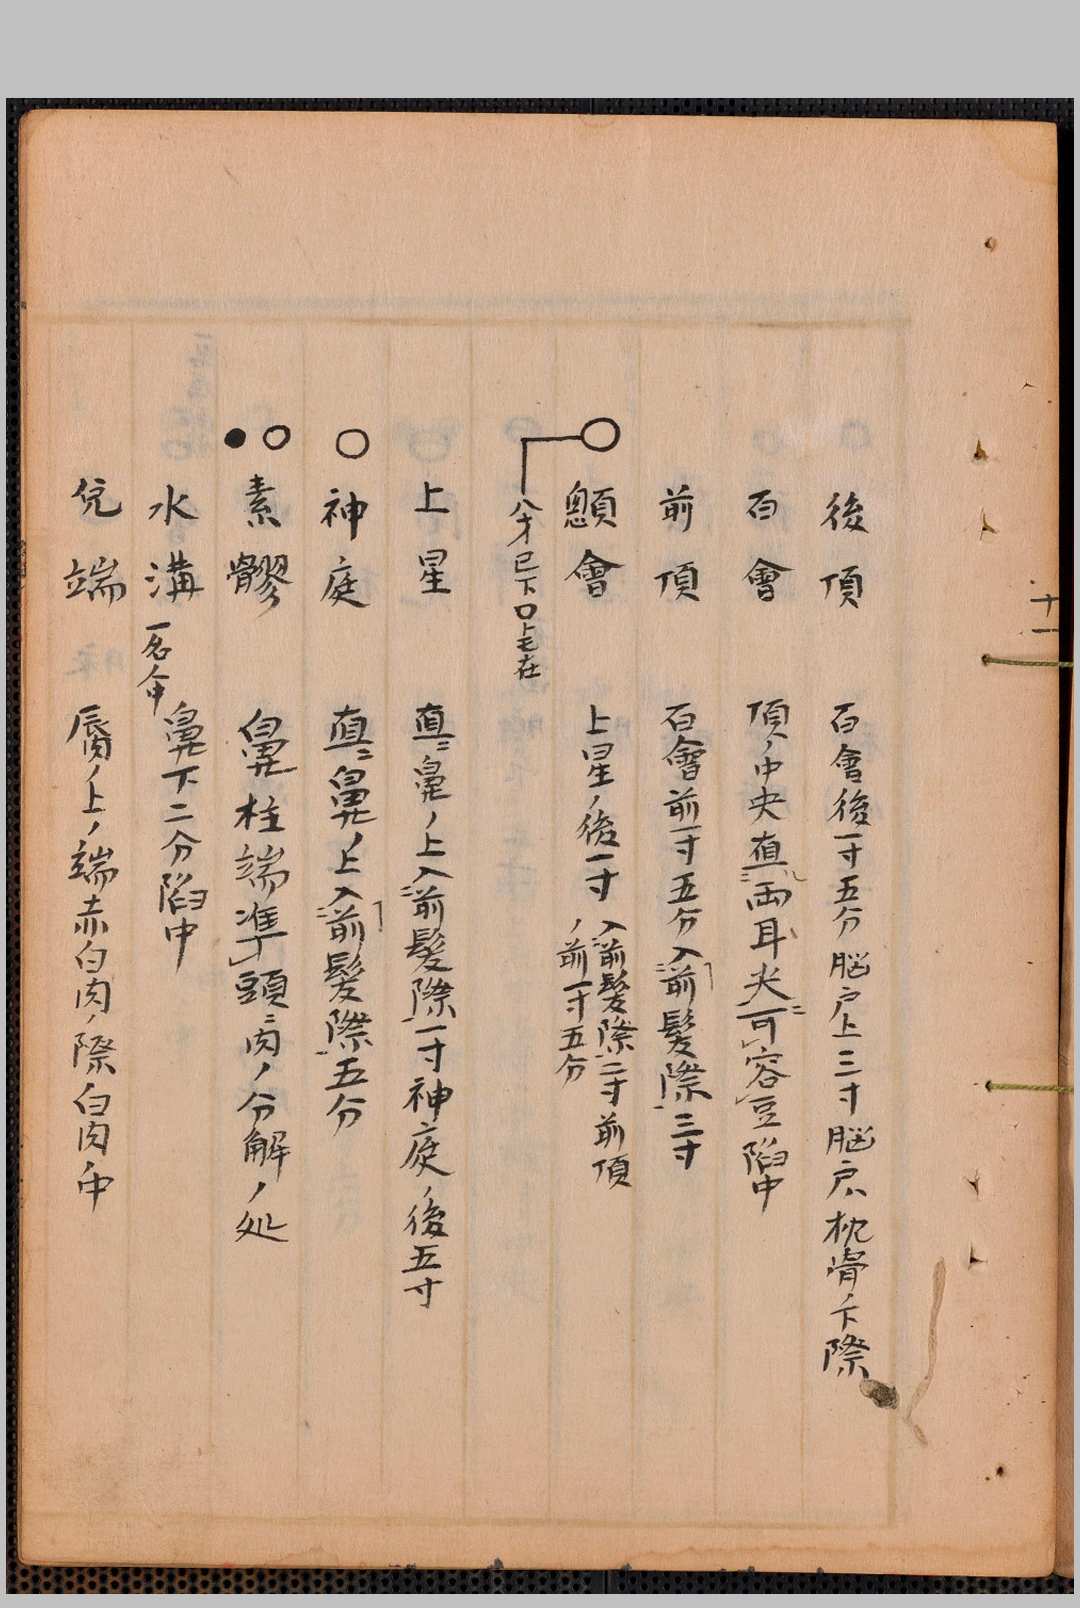 十一
後頂 百會後一寸五分脳戸上三寸脳戸ハ枕骨ノ下際
百會 頂ノ中央直両耳尖可容豆陷中
前頂 百會前一寸五分入前髮際三寸
顖會 上星ノ後一寸入前髮際二寸前頂
ノ前一寸五分
八才已下口上毛在
上星 直ニ鼻ノ上入前髮際一寸神庭ノ後五寸
神庭 直ニ鼻ノ上入前髮際五分
素髎 鼻柱端準頭ニ肉ノ分解ノ処
水溝 一名人中 鼻下二分陷中
兊端 唇ノ上ノ端赤白肉ノ際白肉中